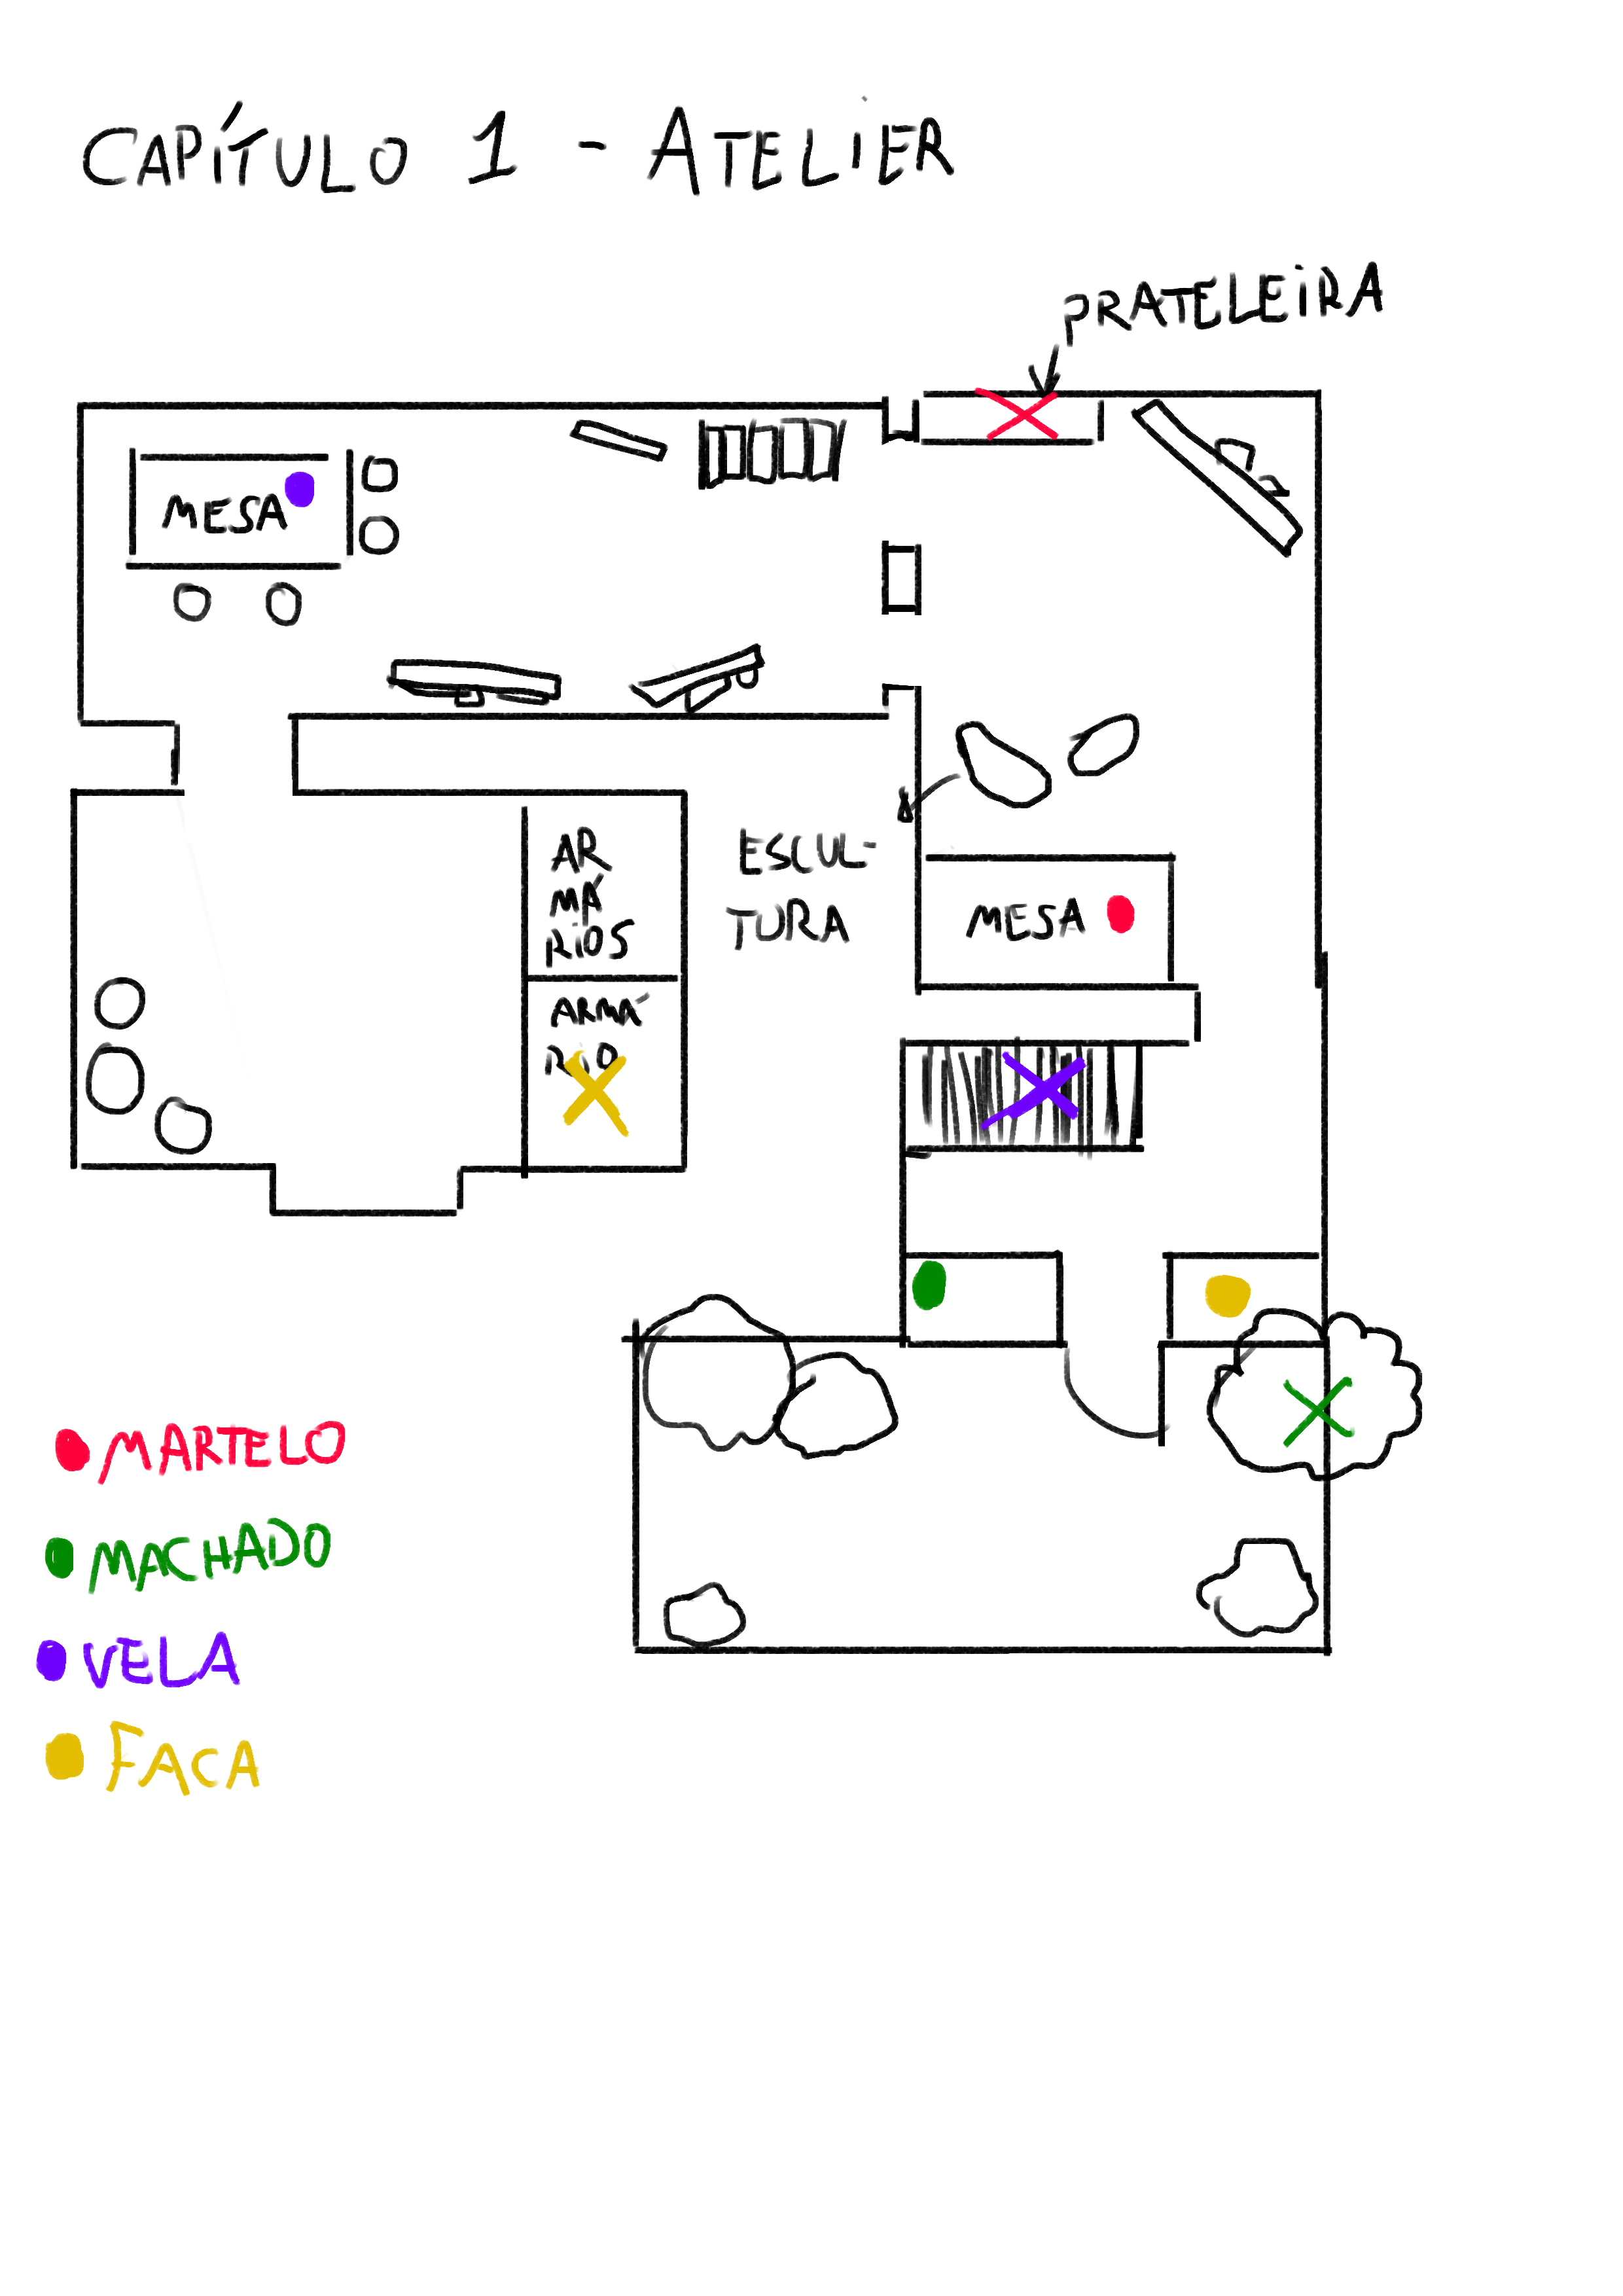 CAPÍTULO 1 - ATELIER
PRATELEIRA
MESA
AR
MÁ
RIOS
ESCUL-
TURA
MESA
ARMÁ
RIO
MARTELO
MACHADO
VELA
FACA